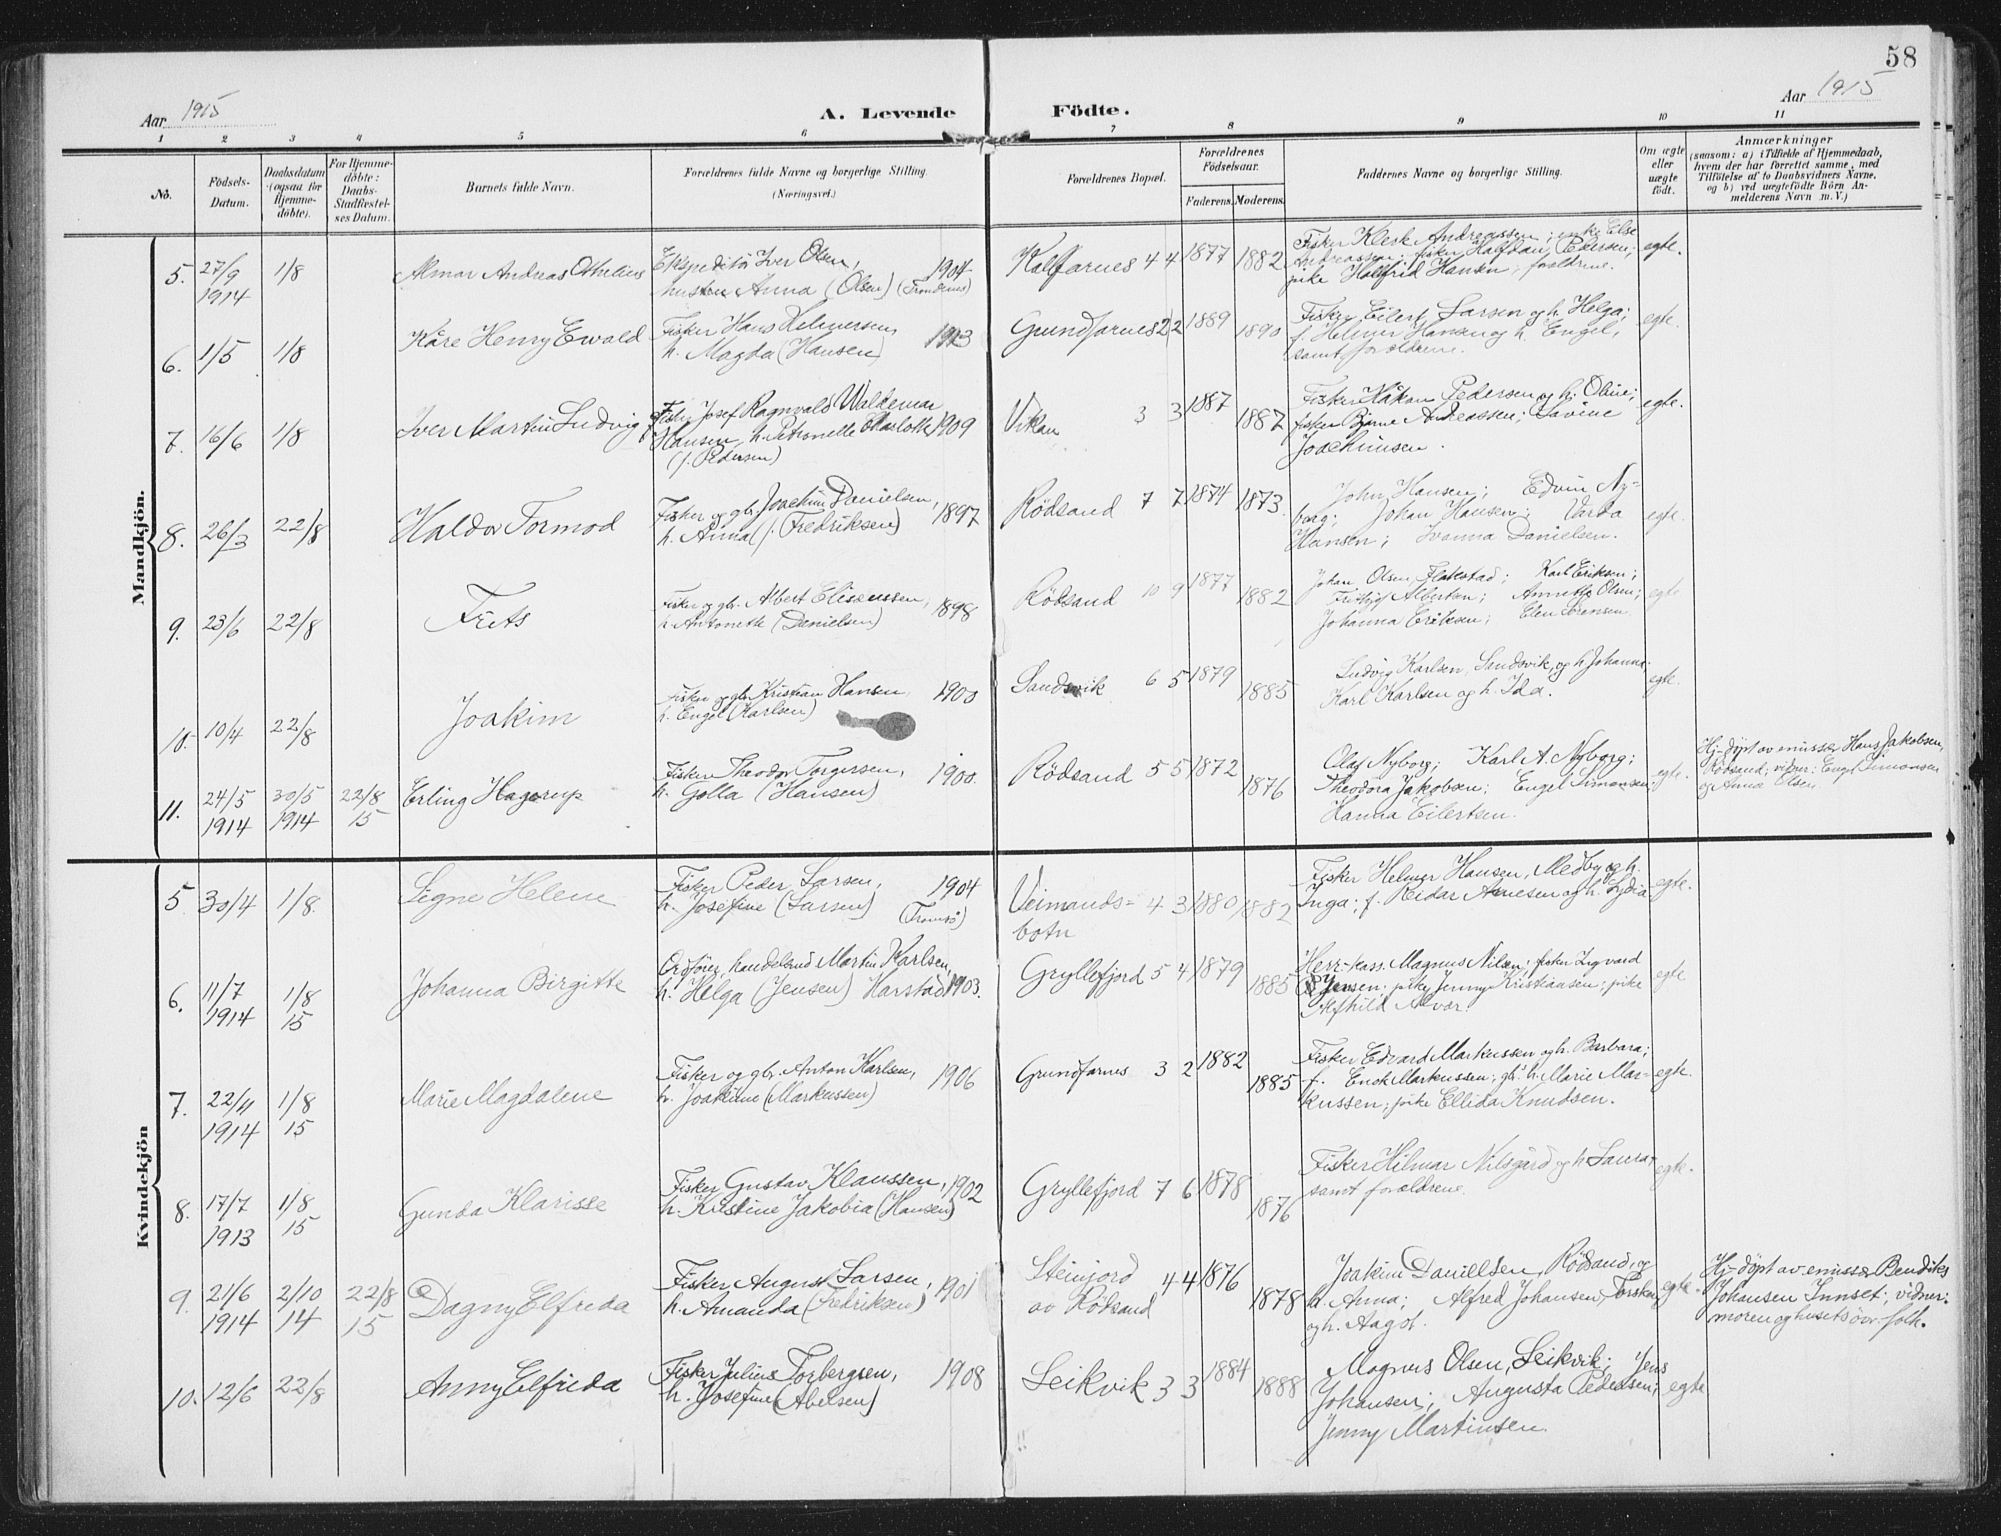 58
Aar 1915
A. Levende Födte.
Aar 1915
1 2 3 4 5 6 7 8 9 10 11
No.
Födsels-
Datum.
Daabsdatum
(ogsaa for
Hjemme-
döbte).
For Hjemme-
döbte:
Daabs-
Stadfæstel-
ses Datum.
Barnets fulde Navn.
Forældrenes fulde Navne og borgerlige Stilling
(Næringsvei.)
Forældrenes Bopæl.
Forældrenes
Födselsaar.
Faderens. Moderens.
Faddernes Navne og borgerlige Stilling.
Om ægte
eller
uægte
født.
Anmærkninger
(saasom: a) i Tilfælde af Hjemmedaab,
hvem der har forrettet samme, med
Tilföielse af to Daabsvidners Navne,
og b) ved uægtefödte Börn An-
melderens Navn m. V.)
Mandkjön.
5. 27/9 1914 1/8 Almar Andreas Othelius
Ekspeditör Iver Olsen, 1904
hustru Anna (Olsen) (Trondenes)
Kalfarnes 4 4 1877 1882
Fisker Klerk Andreassen; enke Else
Andreassen; fisker Halfdan Pedersen;
pike Halfrid Hansen, foreldrene.
egte.
6. 1/5 1/8 Kåre Henry Ewald
Fisker Hans Helmersen, 1913
h. Magda (Hansen)
Grundfarnes 2 2 1889 1890
Fisker Eilert Larsen og h. Helga;
f. Helmer Hansen og h. Engel,
samt forældrene.
egte.
7. 16/6 1/8 Iver Martin Ludvig
Fisker Josef Ragnvald Waldemar
Hansen, h. Petronelle Charlotte 1909
(f. Pedersen)
Vikan 3 3 1887 1887
Fisker Håkon Pedersen og h. Oline;
fisker Bjarne Andreassen; Lavine
Joachimsen.
egte.
8. 26/3 22/8 Haldor Tormod
Fisker og gbr. Joachim Danielsen,
h. Anna (f. Fredriksen) 1897
Rödsand 7 7 1874 1873.
John Hansen; Edvin Ny-
borg; Johan Hansen; Varda
Hansen; Ivanna Danielsen.
egte.
9. 23/6 22/8 Frits
Fisker og gbr. Albert Eliseussen, 1898
h. Antonette (Danielsen)
Rödsand 10 9 1877 1882
Johan Olsen, Flakstad; Karl Eriksen;
Fritjof Albertsen; Annette Olsen;
Johanna Eriksen; Elen Sörensen
egte
10. 10/4 22/8 Joakim
Fisker og gbr Kristian Hansen, 1900
h. Engel (Karlsen)
Sandsvik 6 5 1879 1885
Ludvig Karlsen, Sandsvik, og h. Johanna;
Karl Karlsen og h. Ida.
egte.
11. 24/5 1914 30/5 1914 22/8 15 Erling Hagerup
Fisker Theodor Torgersen, 1900.
h. Golla (Hansen)
Rödsand 5 5 1872 1876
Olaf Nyborg; Karl A. Nyborg;
Theodora Jakobsen; Engel Simonsen;
Hanna Eilertsen.
egte.
Hj-döpt av emissær Hans Jakobsen,
Rödsand; vidner: Engel Simonsen
og Anna Olsen
Kvindekjön
5. 30/4 1/8. Signe Helene
Fisker Peder Larsen, 1904
h. Josefine (Larsen) (Tromsö)
Veimands-
botn
4 3 1880 1882
Fisker Helmer Hansen, Medby og h.
Inga; f. Reidar Arnesen og h. Lydia
egte.
6. 11/7 1914 1/8 15 Johanna Birgitte
Ordförer, handelsmd Martin Karlsen,
h. Helga (Jensen) Harstad 1903.
Gryllefjord 5 4 1879 1885
Herr. kass. Magnus Nilsen; fisker Sigvard
Jensen; pike Jenny Kristiansen; pike
Alfhild Alvar.
egte
7. 22/11 1914 1/8 15 Marie Magdalene
Fisker og gbr. Anton Karlsen, 1906
h. Joakime (Markussen)
Grundfarnes 3 2 1882 1885
Fisker Edvard Markussen og h. Barbara;
f. Enok Markussen; gbr. h. Marie Mar-
kussen; pike Ellida Knudsen.
egte.
8. 17/7 1913 1/8 15 Gunda Klarisse
Fisker Gustav Klaussen, 1902
h. Kristine Jakobia (Hansen)
Gryllefjord 7 6 1878 1876
Fisker Hilmar Nilsgård og h. Laura,
samt forældrene.
egte.
9. 21/6 1914 2/10 14 22/8 15 Dagny Elfrida
Fisker August Larsen, 1901
h. Amanda (Fredriksen)
Steinjord
av Rödsand
4 4 1876 1878
Joakim Daniellsen, Rödsand, og
h. Anna; Alfred Johansen, Torsken
og h. Aagot.
egte.
Hj-döpt av emissær Bendiks
Johansen Innset; vidner:
moren og husets övr. folk.
10. 12/6 22/8 Anny Elfrida
Fisker Julius Torbergsen, 1908
h. Josefine (Abelsen)
Leikvik 3 3 1884 1888
Magnus Olsen, Leikvik; Jens
Johansen; Augusta Pedersen;
Jenny Martinsen.
egte